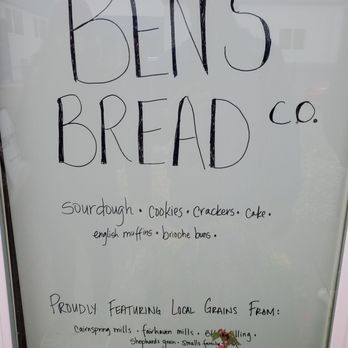 BENS
BREAD CO.
sourdough • cookies • crackers • cake •
english muffins • brioche buns •
PROUDLY FEATURING LOCAL GRAINS FROM:
cairnspring mills • fairhaven mills •
shepherds grain • smalls family